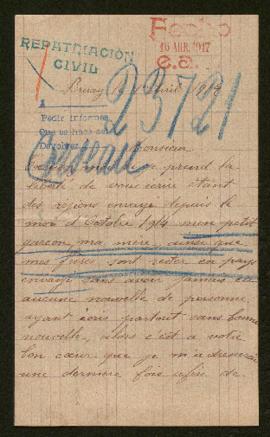 REPATRIACIÓN
CIVIL
Fecho
16 ABR. 1917
e.a.
Bruay le Avril 1917
23721
Pedir informes
Que se haga
Devolver
Monsieur
prend la
liberté de vous écrire étant
des régions envayé depuis le
moi d'Octobre 1914 mon petit
garcon, ma mère, ainsi que
mes frères sont rester en pays
envayé sans avoir jamais eu
aucune nouvelle de personne,
ayant écris partout sans bonne
nouvelle, alors c'est a votre
bon cœur que je m'adresserai
une dernière fois afin de